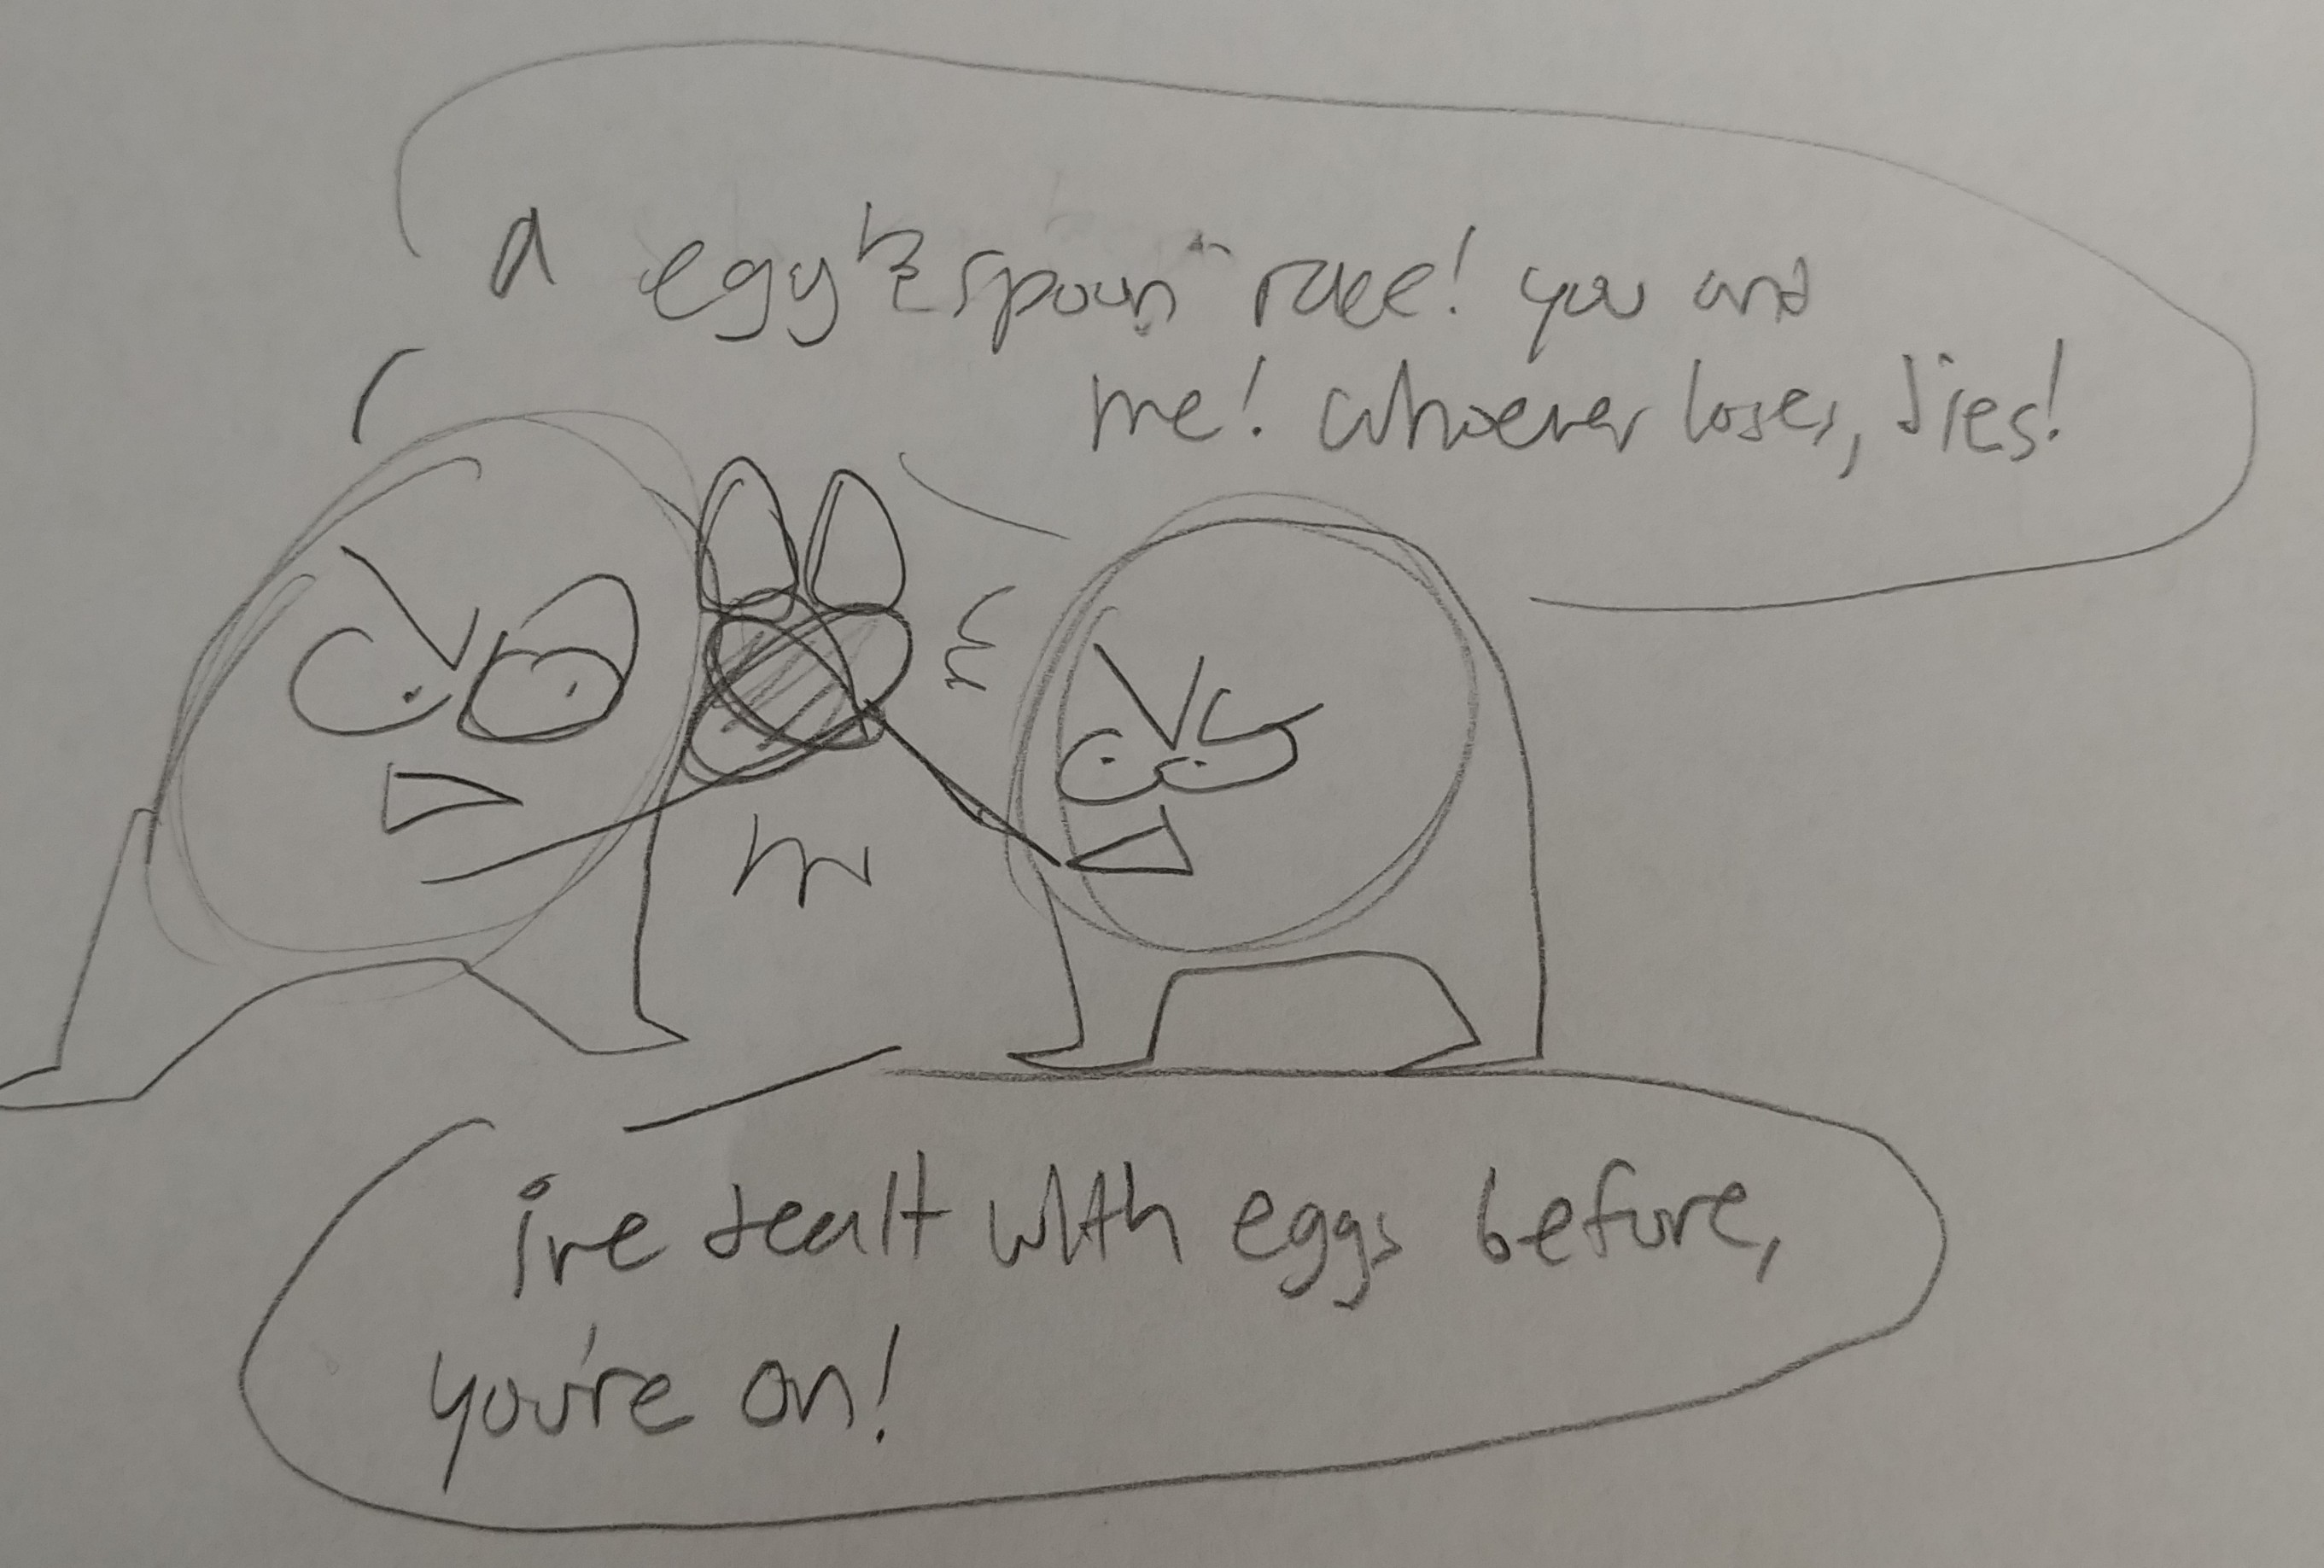 a egg & spoon race! you and
me! whoever loses, dies!
ive dealt with eggs before,
you're on!